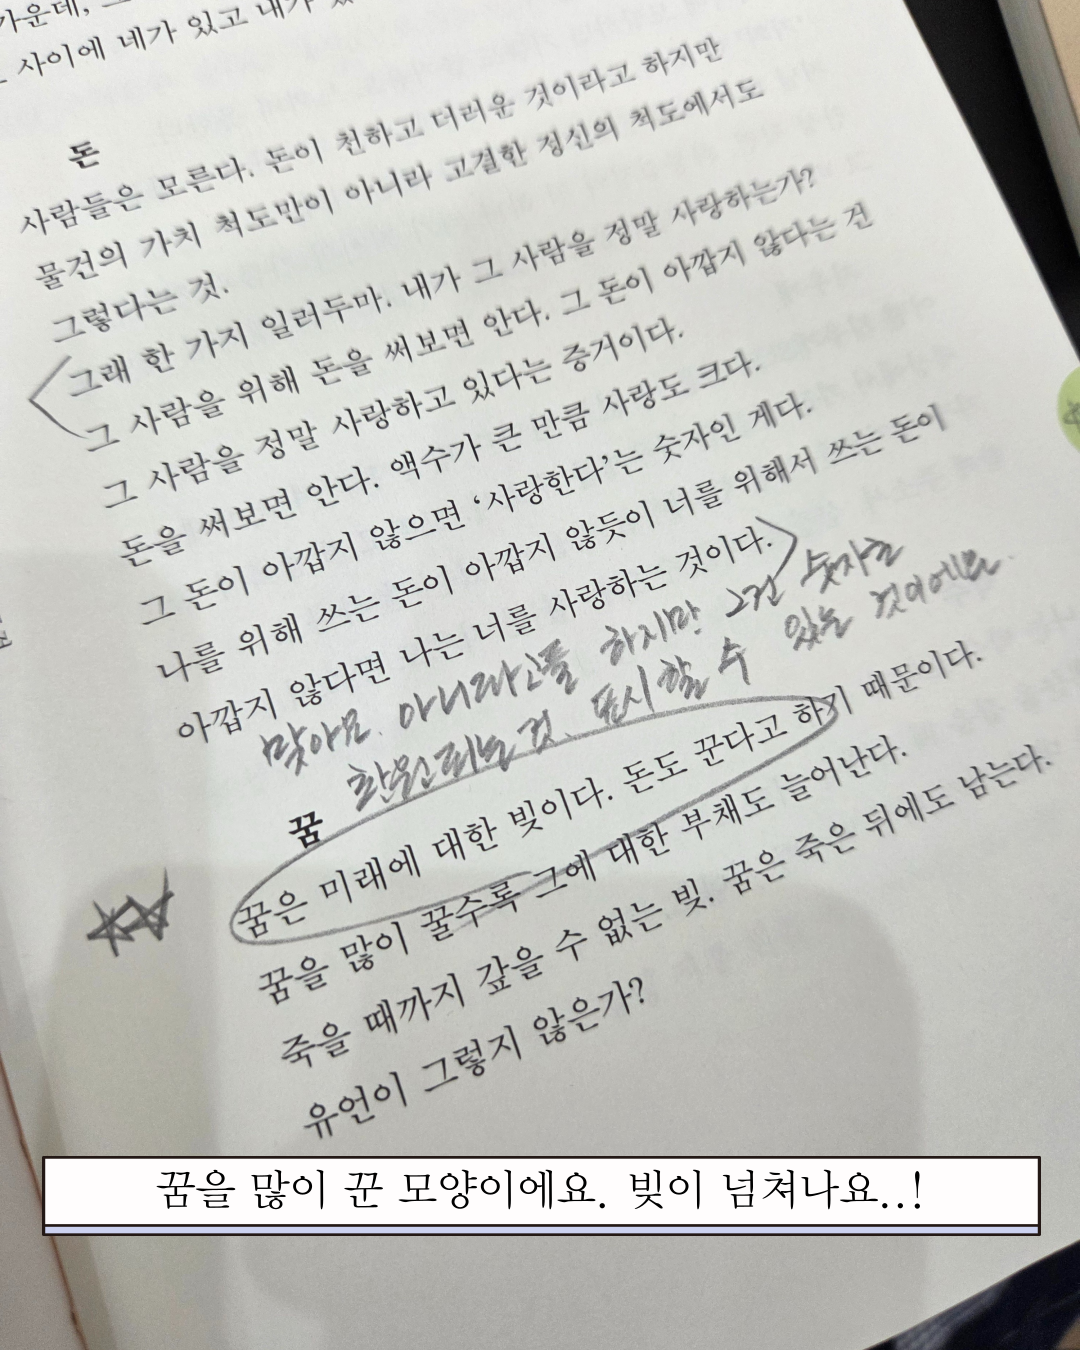 사이에 네가 있고 내가
돈
사람들은 모른다. 돈이 천하고 더러운 것이라고 하지만
물건의 가치 척도만이 아니라 고결한 정신의 척도에서도
그렇다는 것.
그래 한 가지 일러두마. 내가 그 사람을 정말 사랑하는가?
그 사람을 위해 돈을 써보면 안다. 그 돈이 아깝지 않다는 건
그 사람을 정말 사랑하고 있다는 증거이다.
돈을 써보면 안다. 액수가 큰 만큼 사랑도 크다.
그 돈이 아깝지 않으면 ‘사랑한다’는 숫자인 게다.
나를 위해 쓰는 돈이 아깝지 않듯이 너를 위해서 쓰는 돈이
아깝지 않다면 나는 너를 사랑하는 것이다.
맞아요. 아니라고들 하지만 그건 숫자로
환원되는 것. 표시할 수 있는 것이에요.
꿈
꿈은 미래에 대한 빚이다. 돈도 꾼다고 하기 때문이다.
꿈을 많이 꿀수록 그에 대한 부채도 늘어난다.
죽을 때까지 갚을 수 없는 빚. 꿈은 죽은 뒤에도 남는다.
유언이 그렇지 않은가?
꿈을 많이 꾼 모양이에요. 빚이 넘쳐나요..!